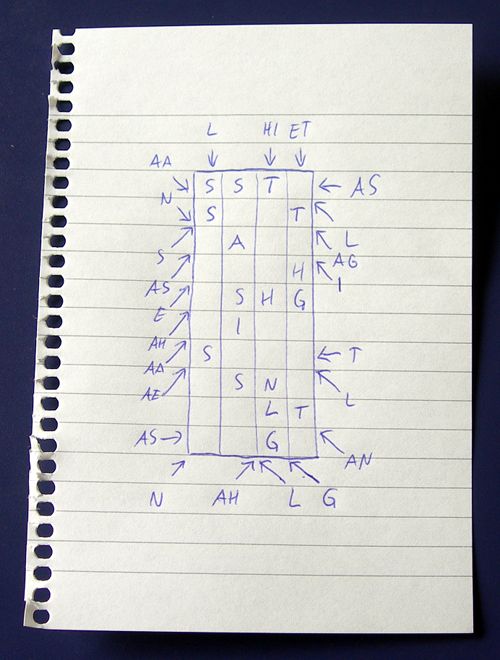 L HI ET
AA S S T AS
N S T
A L
S H AG
AS S H G I
E I
AH S T
AA
AE S N L
L T
AS G AN
N AH L G